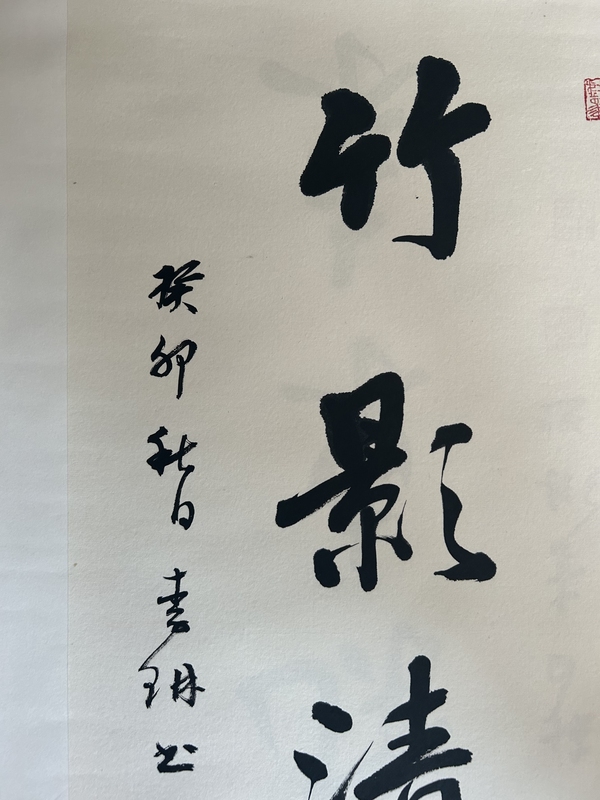 竹影清
癸卯秋日珊书